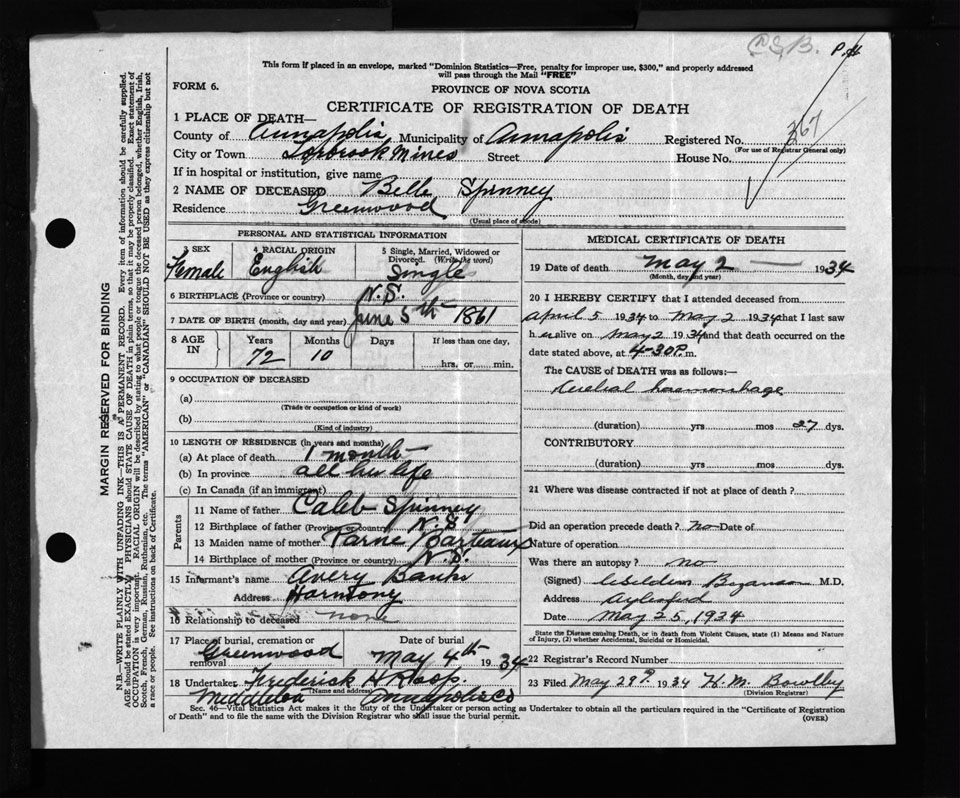 P.
This form if placed in an envelope, marked "Dominion Statistics—Free, penalty for improper use, $300," and properly addressed
will pass through the Mail "FREE"
FORM 6.
PROVINCE OF NOVA SCOTIA
CERTIFICATE OF REGISTRATION OF DEATH
1 PLACE OF DEATH—
County of Annapolis Municipality of Annapolis Registered No. 367
(For use of Registrar General only)
City or Town Torbrook Mines Street House No.
If in hospital or institution, give name
2 NAME OF DECEASED Belle Spinney
Residence Greenwood
(Usual place of abode)
PERSONAL AND STATISTICAL INFORMATION
3 SEX Female
4 RACIAL ORIGIN English
5 Single, Married, Widowed or Divorced. (Write the word) Single
6 BIRTHPLACE (Province or country) N.S.
7 DATE OF BIRTH (month, day and year) June 5th 1861
8 AGE IN Years 72 Months 10 Days If less than one day, hrs. or min.
9 OCCUPATION OF DECEASED
(a)
(Trade or occupation or kind of work)
(b)
(Kind of industry)
10 LENGTH OF RESIDENCE (in years and months)
(a) At place of death 1 month
(b) In province all her life
(c) In Canada (if an immigrant)
Parents
11 Name of father Caleb Spinney
12 Birthplace of father (Province or country) N.S
13 Maiden name of mother Barteaux
14 Birthplace of mother (Province or country) N.S.
15 Informant's name Avery Banks
Address Harmony
16 Relationship to deceased none
17 Place of burial, cremation or removal Greenwood
Date of burial May 4th 1934
18 Undertaker Frederick H Roop.
(Name and address)
Middleton Annapolis Co
MEDICAL CERTIFICATE OF DEATH
19 Date of death May 2 — 1934
(Month, day and year)
20 I HEREBY CERTIFY that I attended deceased from
April 5 1934 to May 2 1934 that I last saw
her alive on May 2 1934 and that death occurred on the
date stated above, at 4-30 P.m.
The CAUSE of DEATH was as follows:—
Cerebral haemorrhage
(duration) yrs mos 27 dys.
CONTRIBUTORY
(duration) yrs mos dys.
21 Where was disease contracted if not at place of death?
Did an operation precede death? No Date of
Nature of operation
Was there an autopsy? no
(Signed) M.D.
Address Aylesford
Date May 25, 1934
State the Disease causing Death, or in death from Violent Causes, state (1) Means and Nature
of Injury, (2) whether Accidental, Suicidal or Homicidal.
22 Registrar's Record Number
23 Filed May 29th 1934 H. M. Bowlby
(Division Registrar)
Sec. 46—Vital Statistics Act makes it the duty of the Undertaker or person acting as Undertaker to obtain all the particulars required in the "Certificate of Registration
of Death" and to file the same with the Division Registrar who shall issue the burial permit.
(OVER)
MARGIN RESERVED FOR BINDING
N.B.—WRITE PLAINLY WITH UNFADING INK—THIS IS A PERMANENT RECORD. Every item of information should be carefully supplied.
AGE should be stated EXACTLY. PHYSICIANS should STATE CAUSE OF DEATH in plain terms, so that it may be properly classified. Exact statement of
OCCUPATION is very important. RACIAL ORIGIN will be described by stating to what people or tongue the deceased person belonged, whether English, Irish,
Scotch, French, German, Russian, Ruthenian, etc. The terms "AMERICAN" or "CANADIAN" SHOULD NOT BE USED as they express citizenship but not
a race or people. See instructions on back of Certificate.